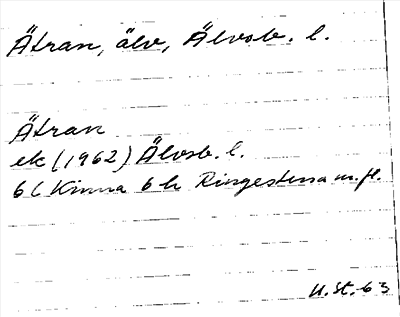 Ätran, älv, Älvsb. l.
Ätran
ek (1962) Älvsb. l.
6C Kinna 6b Ringestena m. fl.
U.St. 63